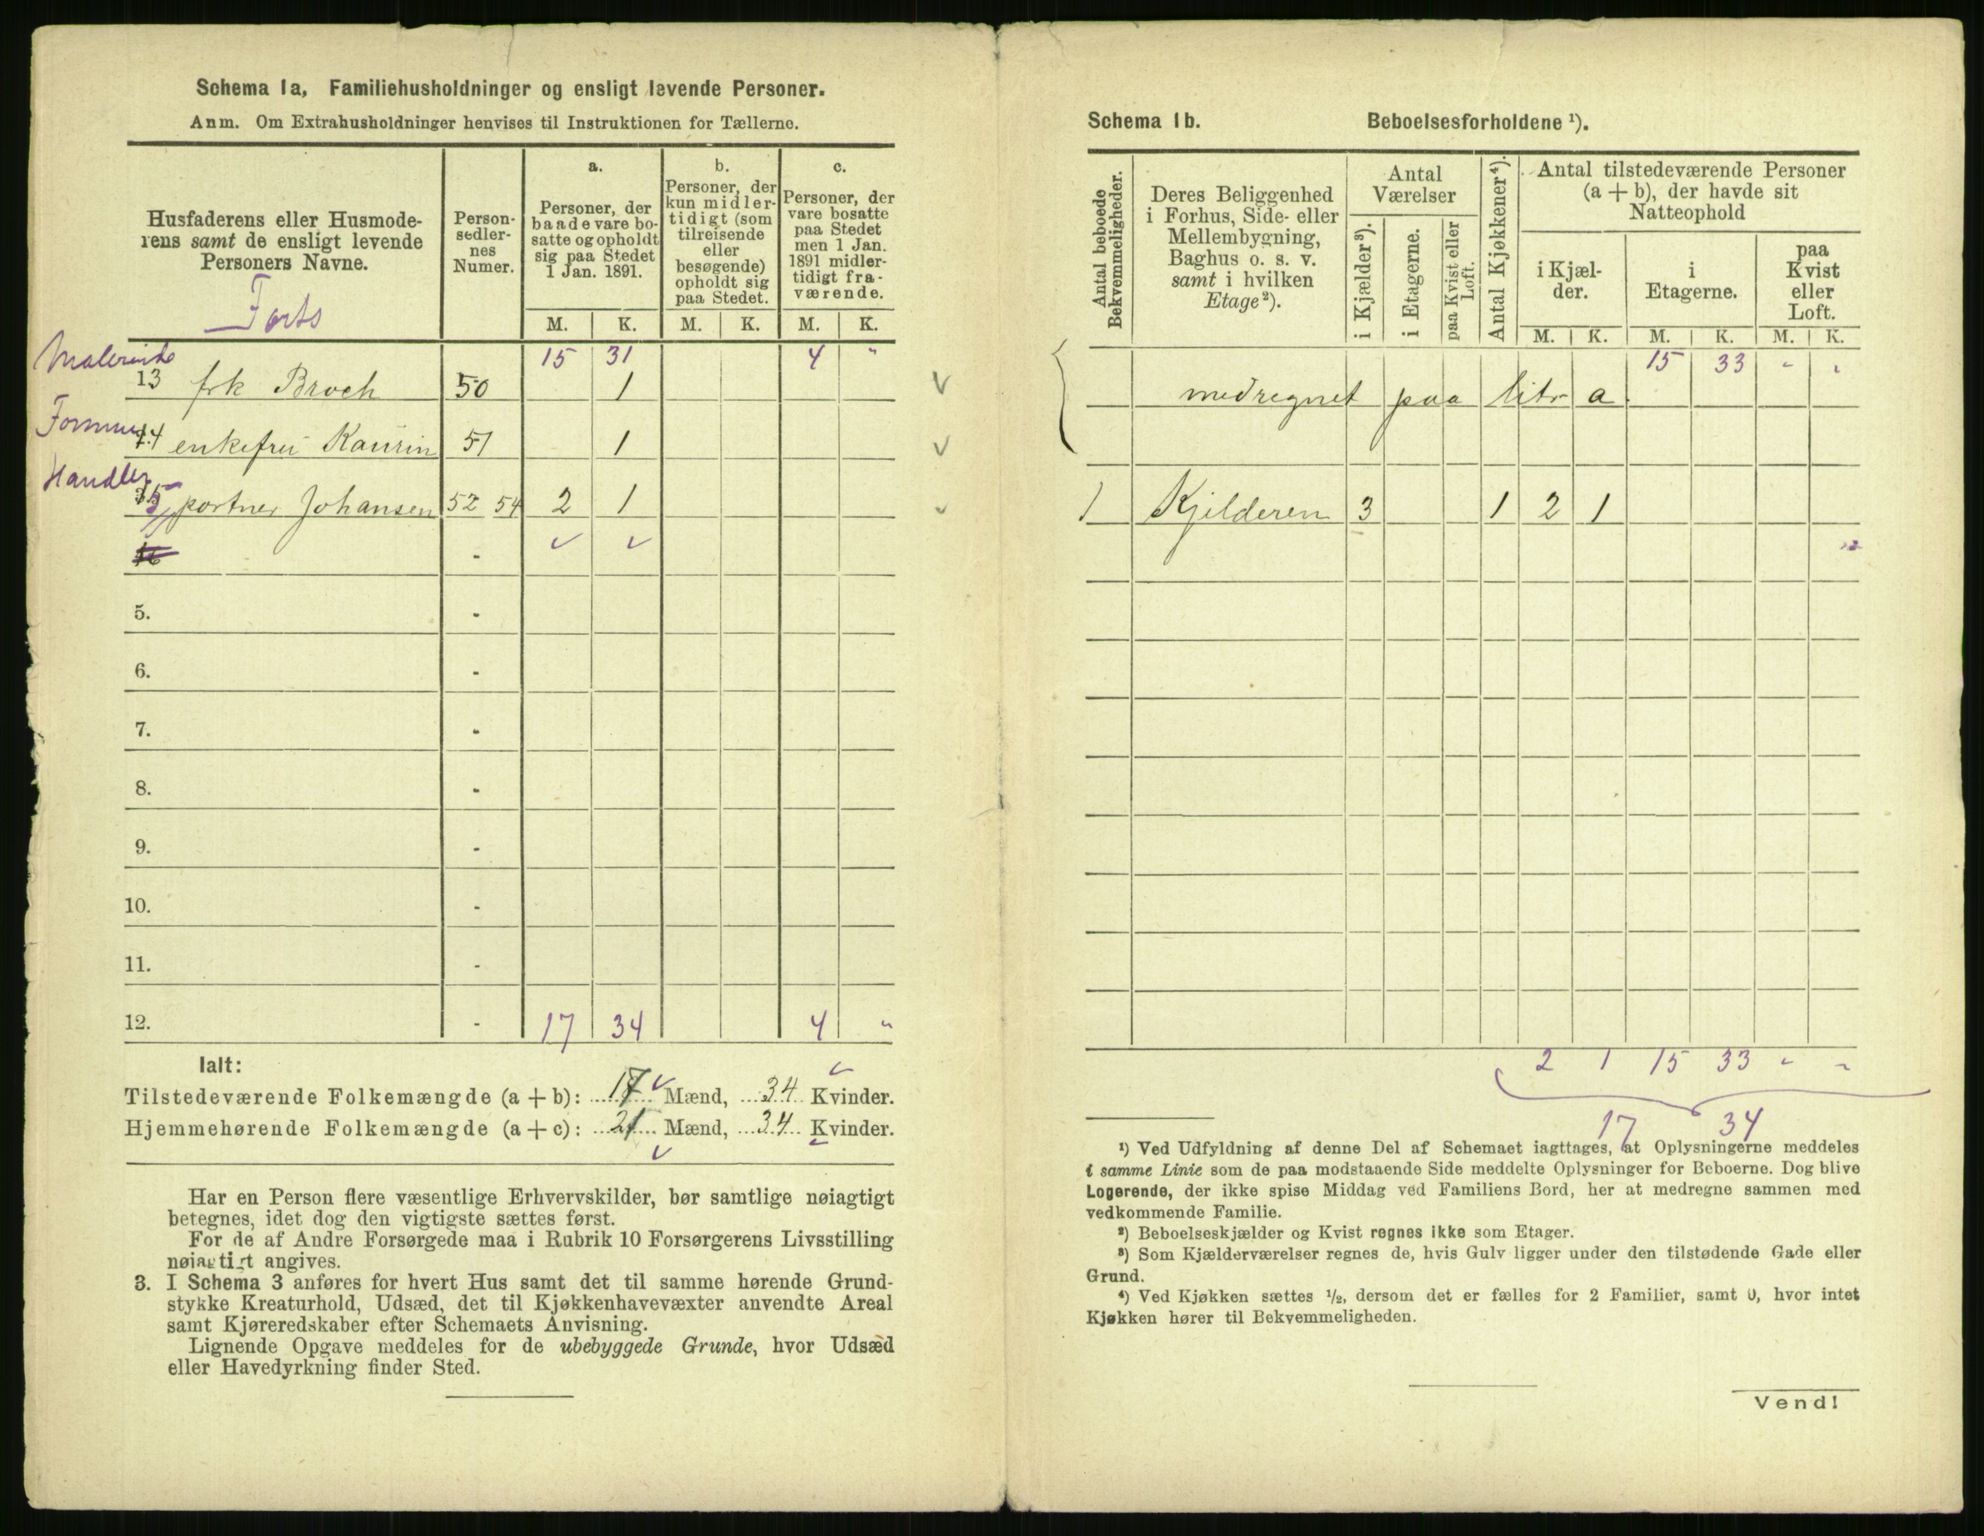 Schema 1a, Familiehusholdninger og ensligt levende Personer.
Anm. Om Extrahusholdninger henvises til Instruktionen for Tællerne.
Husfaderens eller Husmode-
rens samt de ensligt levende
Personers Navne.
Forts
Person-
sedler-
nes
Numer.
a.
Personer, der
baade vare bo-
satte og opholdt
sig paa Stedet
1 Jan. 1891.
b.
Personer, der
kun midler-
tidigt (som
tilreisende
eller
besøgende)
opholdt sig
paa Stedet.
c.
Personer, der
vare bosatte
paa Stedet
men 1 Jan.
1891 midler-
tidigt fra-
værende.
M. K. M. K. M. K.
15 31 4 "
Malerinde
13 frk Broch 50 1
14 enkefru Kaurin 51 1
Handler
15 portner Johansen 52 54 2 1
16 -
5. -
6. -
7. -
8. -
9. -
10. -
11. -
12. - 17 34 4 "
Ialt:
Tilstedeværende Folkemængde (a + b): 17 Mænd, 34 Kvinder.
Hjemmehørende Folkemængde (a + c): 21 Mænd, 34 Kvinder.
Har en Person flere væsentlige Erhvervskilder, bør samtlige nøiagtigt
betegnes, idet dog den vigtigste sættes først.
For de af Andre Forsørgede maa i Rubrik 10 Forsørgerens Livsstilling
nøiagtigt angives.
3. I Schema 3 anføres for hvert Hus samt det til samme hørende Grund-
stykke Kreaturhold, Udsæd, det til Kjøkkenhavevæxter anvendte Areal
samt Kjøreredskaber efter Schemaets Anvisning.
Lignende Opgave meddeles for de ubebyggede Grunde, hvor Udsæd
eller Havedyrkning finder Sted.
Schema 1b. Beboelsesforholdene ¹).
Antal beboede
Bekvemmeligheder.
Deres Beliggenhed
i Forhus, Side- eller
Mellembygning,
Baghus o. s. v.
samt i hvilken
Etage²).
Antal
Værelser
i Kjælder³).
i Etagerne.
paa Kvist eller
Loft.
Antal Kjøkkener⁴).
Antal tilstedeværende Personer
(a + b), der havde sit
Natteophold
i Kjæl-
der.
i
Etagerne.
paa
Kvist
eller
Loft.
M. K. M. K. M. K.
15 33 " "
medregnet paa litr a
1 Kjelderen 3 1 2 1
2 1 15 33 " "
17 34
¹) Ved Udfyldning af denne Del af Schemaet iagttages, at Oplysningerne meddeles
i samme Linie som de paa modstaaende Side meddelte Oplysninger for Beboerne. Dog blive
Logerende, der ikke spise Middag ved Familiens Bord, her at medregne sammen med
vedkommende Familie.
²) Beboelseskjælder og Kvist regnes ikke som Etager.
³) Som Kjælderværelser regnes de, hvis Gulv ligger under den tilstødende Gade eller
Grund.
⁴) Ved Kjøkken sættes ¹/₂, dersom det er fælles for 2 Familier, samt 0, hvor intet
Kjøkken hører til Bekvemmeligheden.
Vend!